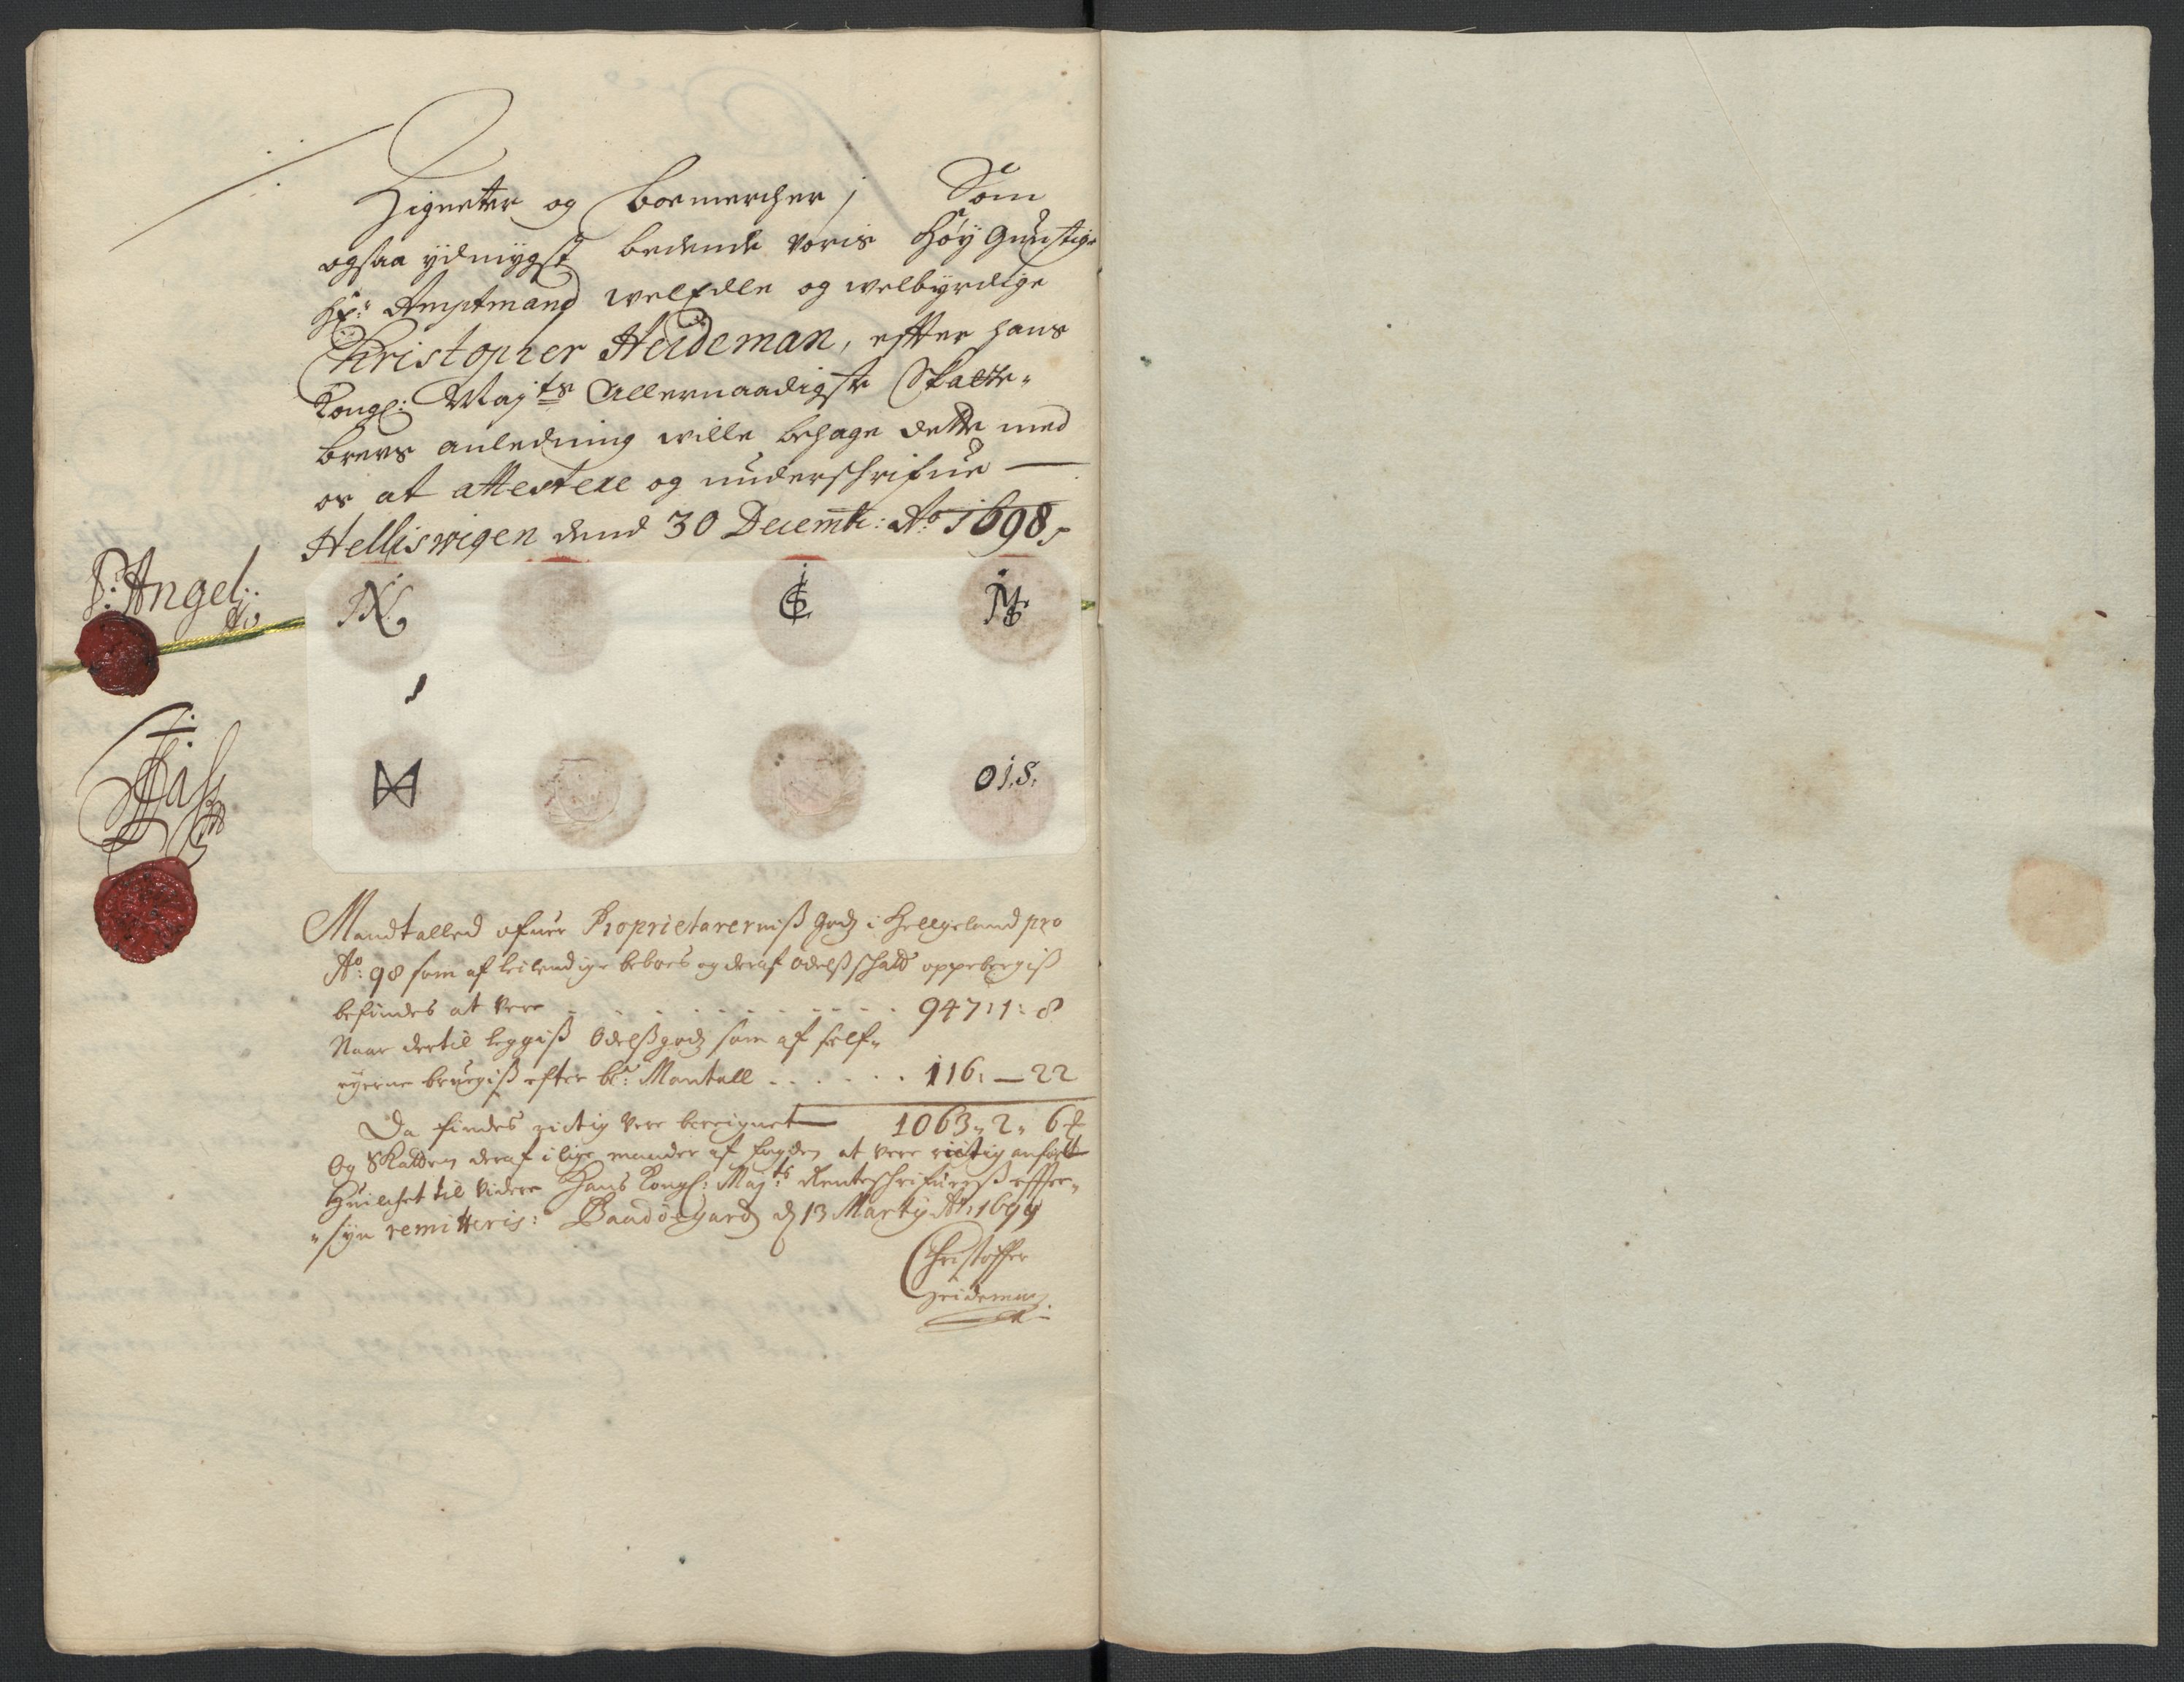 Zigneter og boemercher, Som
ogsaa ydmygst bedende voris Høy Gunstige
Hr: Amptmand welEdle og welbyrdige
Christopher Heideman, effter hans
Kongl: Mayts Allernaadigste Skatte-
brevs anledning wille behage dette med
os at attestere og underschrifue —
Helliswigen dend 30 Decemb: Ao 1698,
P: Angel:
OIS.
Mandtalled ofuer Proprietarernis godz i Helgeland pro
Ao: 98 som af leilendige beboes og deraf odelsschatt oppebergis
befindes at vere . . . . . . . . . 947: 1: 8
Naar dertil leggis Odelsgodz som af self-
eyerne brugis efter be: Mantall . . . . . 116: — 22
Da findes rictig vere beregnet — 1063,, 2,, 6
Og Skatten deraf i lige maader af fogden at vere rictig anført
Huilchet til videre Hans Kongl: Mayts Renteschrifueres effter-
syn remitteris: Baadøegard d 13 Marty Ao: 1699
Christoffer
Heideman